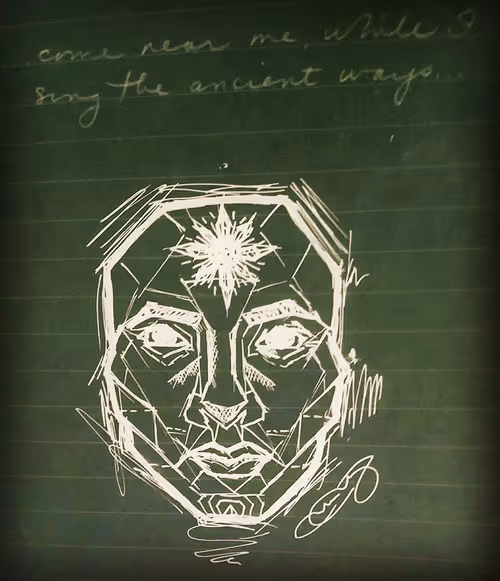 ...come near me, while I
sing the ancient ways...